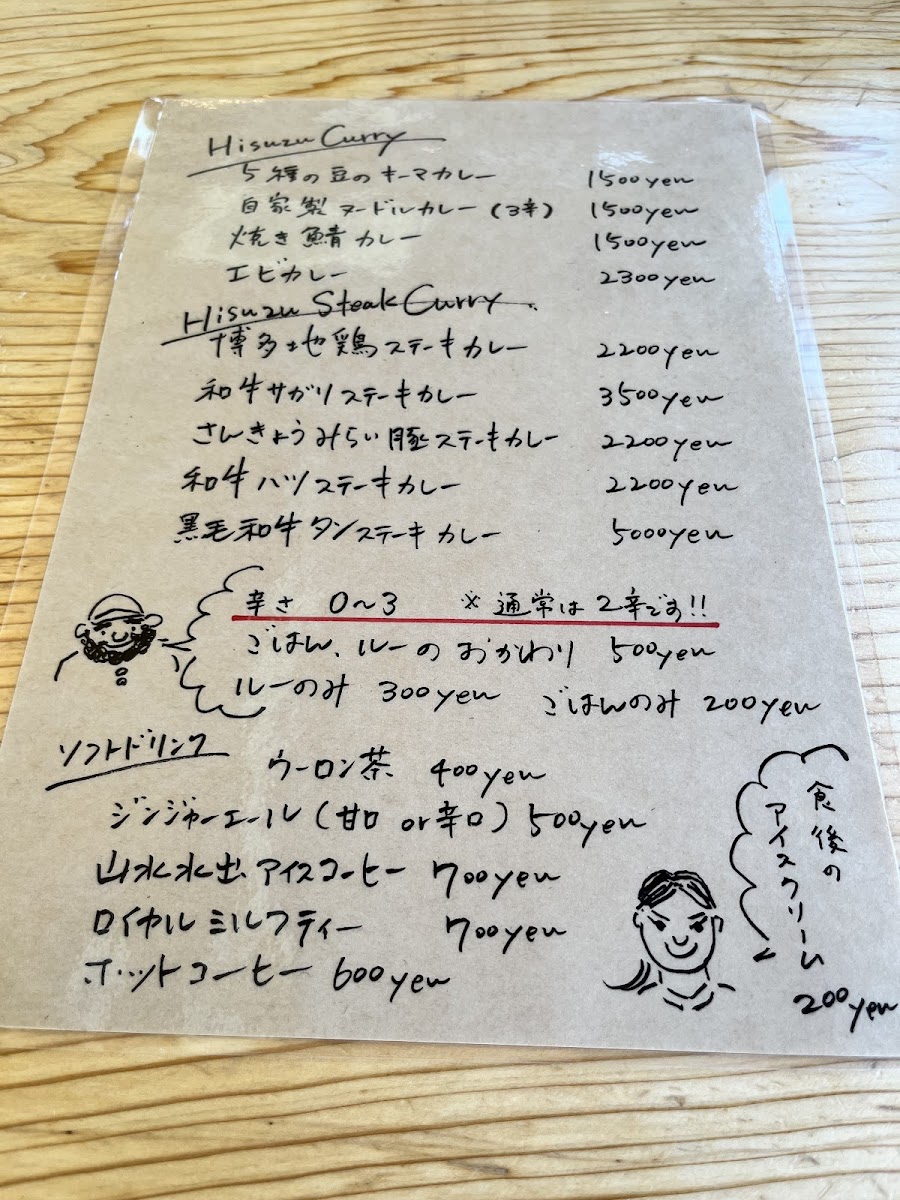 Hisuzu Curry
5種の豆のキーマカレー 1500yen
自家製ヌードルカレー(3辛) 1500yen
焼き鯖カレー 1500yen
エビカレー 2300yen
Hisuzu Steak Curry
博多地鶏ステーキカレー 2200yen
和牛サガリステーキカレー 3500yen
さんきょうみらい豚ステーキカレー 2200yen
和牛ハツステーキカレー 2200yen
黒毛和牛タンステーキカレー 5000yen
辛さ 0~3 ※通常は2辛です!!
ごはん、ルーのおかわり 500yen
ルーのみ 300yen ごはんのみ 200yen
ソフトドリンク
ウーロン茶 400yen
ジンジャーエール(甘口or辛口) 500yen
山水水出アイスコーヒー 700yen
ロイヤルミルクティー 700yen
ホットコーヒー 600yen
食後の
アイスクリーム
200yen